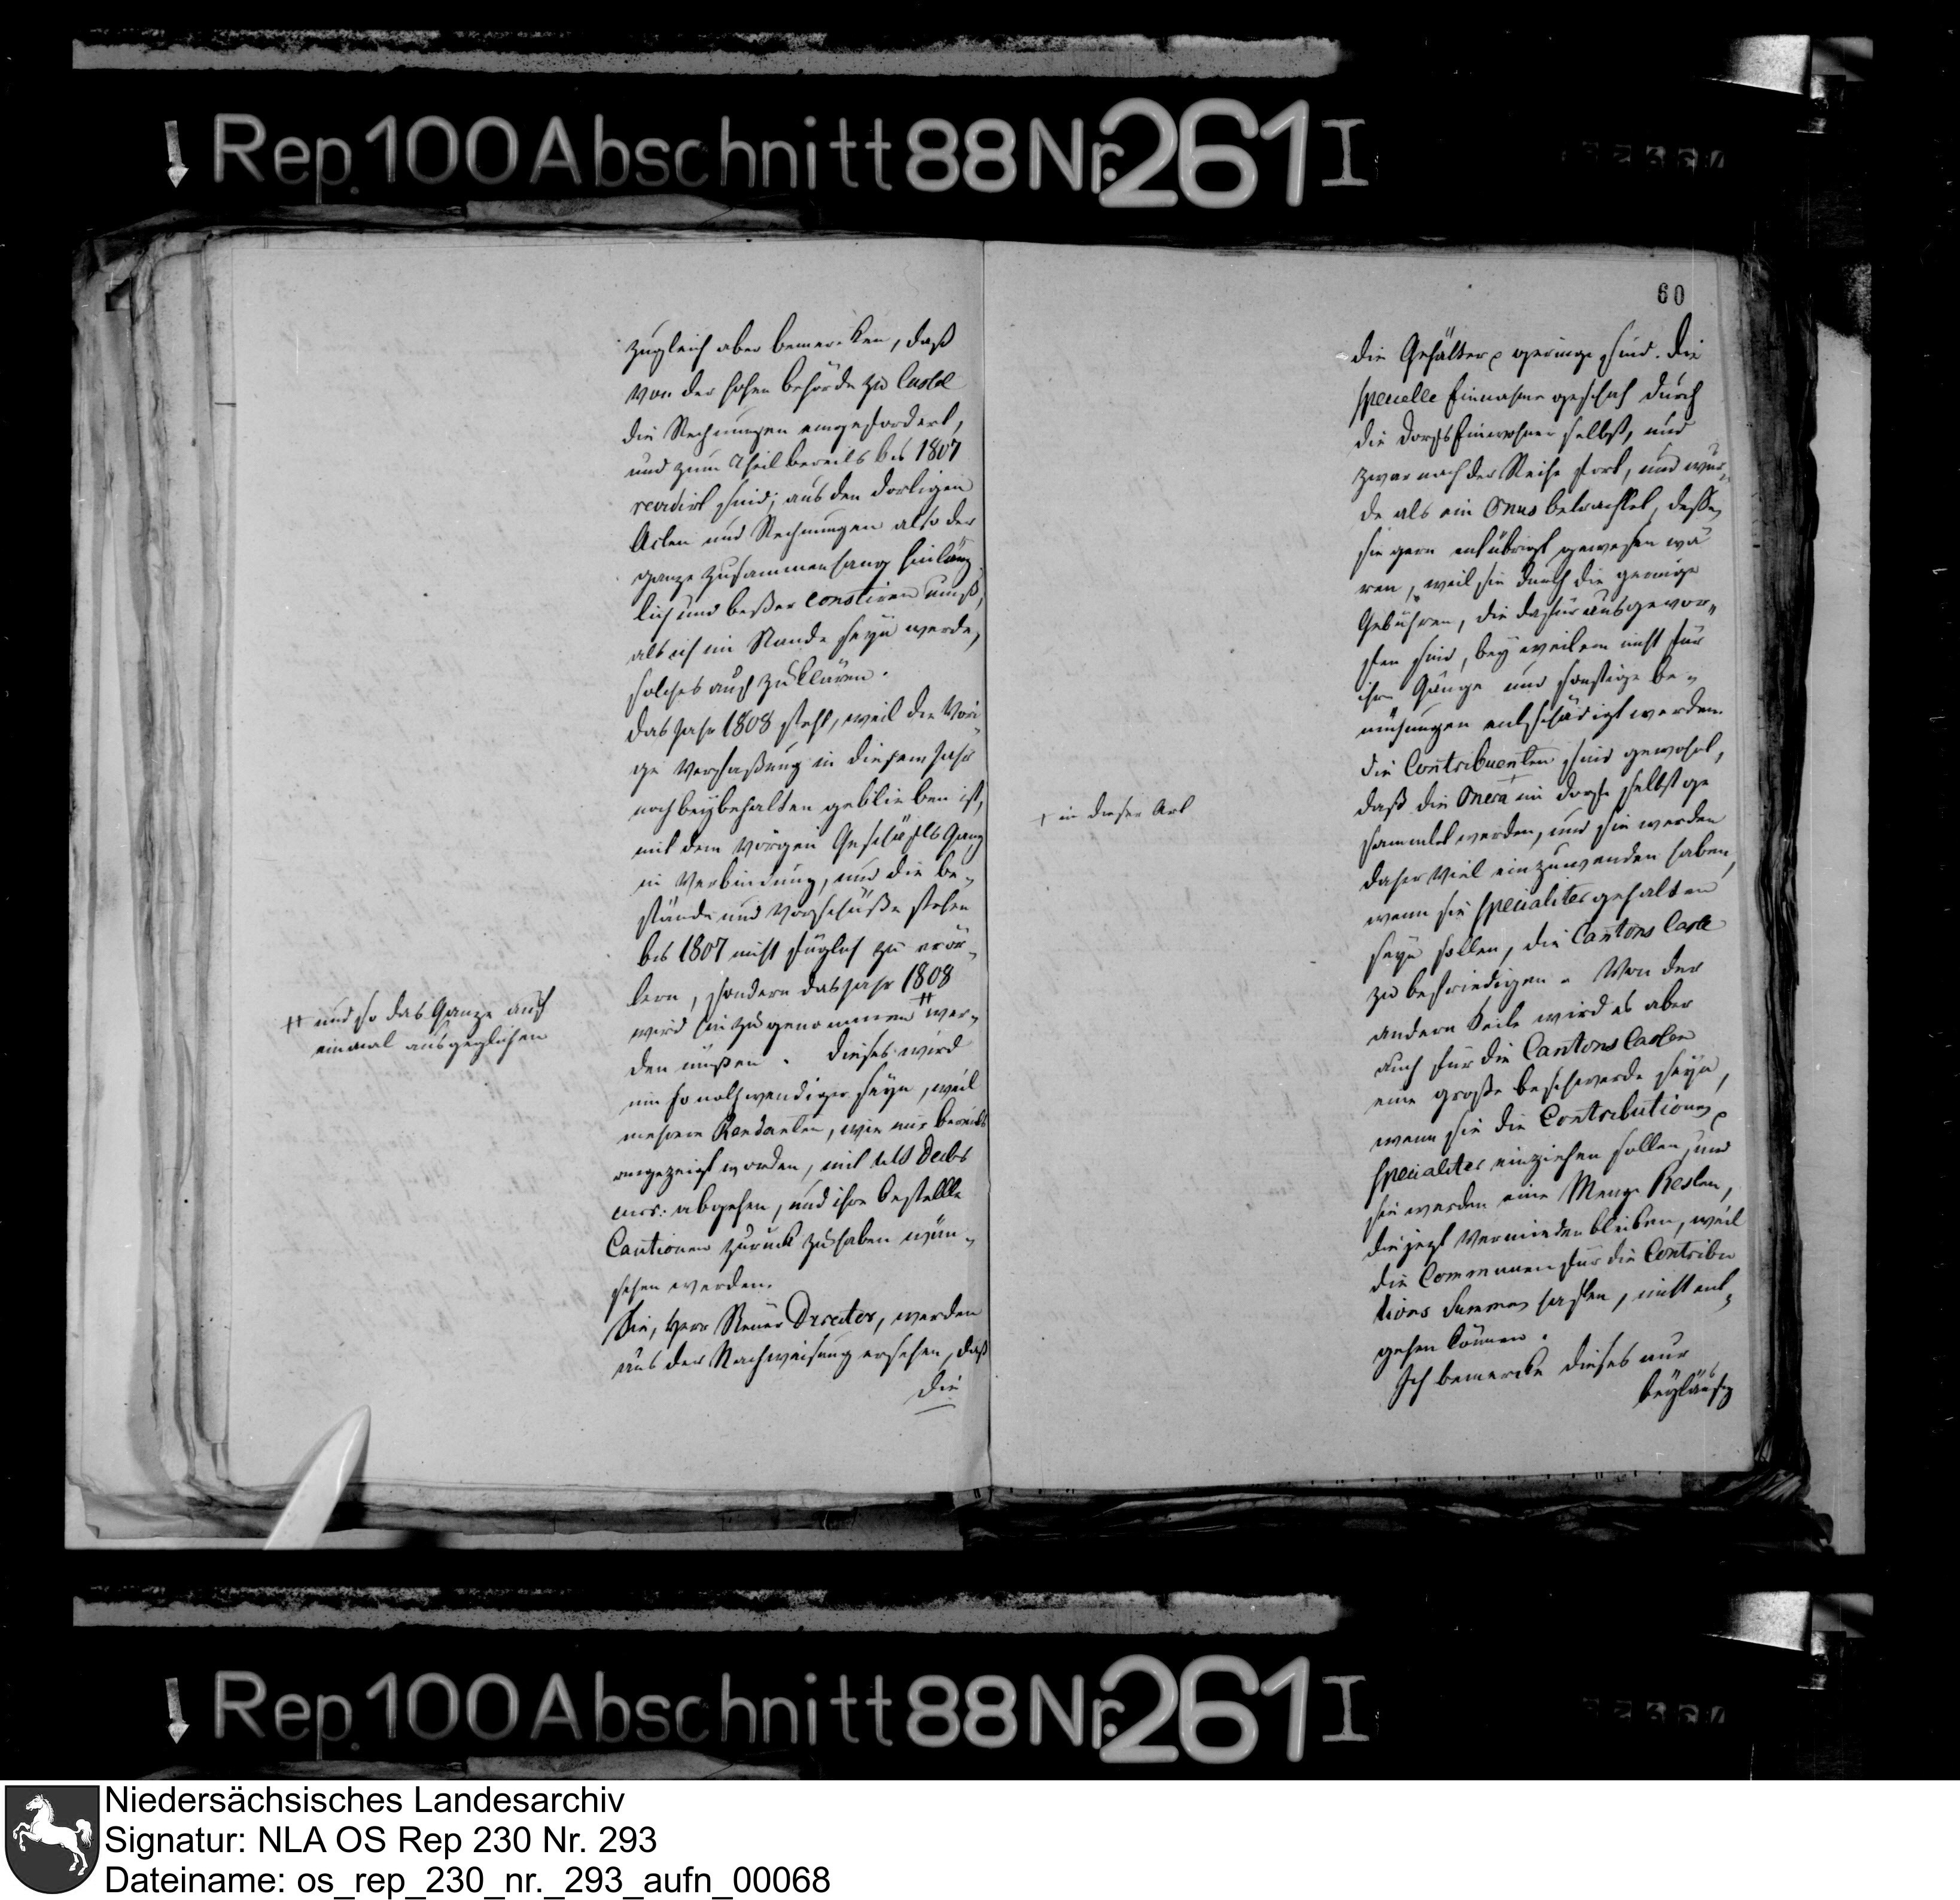 Rep. 100 Abschnitt 88 Nr. 261 I
zugleich aber bemercken, daß
von der hohen Behörde zu Cassel
die Rechnungen eingefordert,
und zum Theil bereits bis 1807
revidirt sind; aus den dortigen
Acten und Rechnungen also der
ganze Zusammenhang hinläng
lich und beßer constiren muß,
als ich im Stande seyn werde,
solches aufzuklären.
Das Jahr 1808 steht, weil die Vori
ge Verfaßung in diesem Jahr
noch beybehalten geblieben ist,
mit dem vorigen Geschäfts Gang
in Verbindung, und die Be-
stände und Vorschüße stehen
bis 1807 nicht füglich zu erör-
tern, sondern das Jahr 1808
wird hinzugenommen # wer-
den müßen. Dieses wird
um so nothwendiger seyn, weil
mehrere Rendanten, wie mir bereits
angezeigt worden, mit ult Decbr
curr: abgehen, und ihre bestellte
Cautionen zurück zu haben wün-
schen werden.
Sie, Herr Steuer Director, werden
aus der Nachweisung ersehen, daß
die
# und so das Ganze auf
einmal ausgeglichen
60
die Gehälter geringe sind. Die
specielle Einnahme geschah durch
die Dorfs Einwohner selbst, und
zwar nach der Reihe fort, und wur-
de als ein Onus betrachtet, deßen
sie gern entübrigt gewesen wä
ren, weil sie durch die geringe
Gebühren, die dafür ausgewor-
fen sind, bey weitem nicht für
ihre Gänge und sonstige Be-
mühungen entschädigt werden.
Die Contribuenten sind gewohnt,
daß die Onera im Dorfe selbst ge
sammlet werden, und sie werden
daher viel einzuwenden haben,
wenn sie specialiter gehalten
seyn sollen, die Cantons Casse
zu befriedigen. Von der
andern Seite wird es aber
auch für die Cantons Cassen
eine große Beschwerde seyn,
wenn sie die Contributiones
specialiter einziehen sollen, und
sie werden eine Menge Resten,
die jezt vermieden bleiben, weil
die Communen für die Contribu
tions Summen haften, nicht ent-
gehen können.
Ich bemercke dieses nur
beyläufig
+ in dieser Art
Rep. 100 Abschnitt 88 Nr. 261 I
Niedersächsisches Landesarchiv
Signatur: NLA OS Rep 230 Nr. 293
Dateiname: os_rep_230_nr._293_aufn_00068